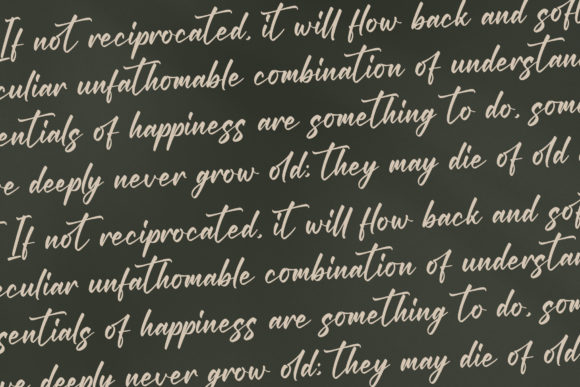 If not reciprocated, it will flow back and soft
culiar unfathomable combination of understan
entials of happiness are something to do, som
e deeply never grow old; they may die of old
If not reciprocated, it will flow back and sof
eculiar unfathomable combination of understan
sentials of happiness are something to do, som
ve deeply never grow old; they may die of old